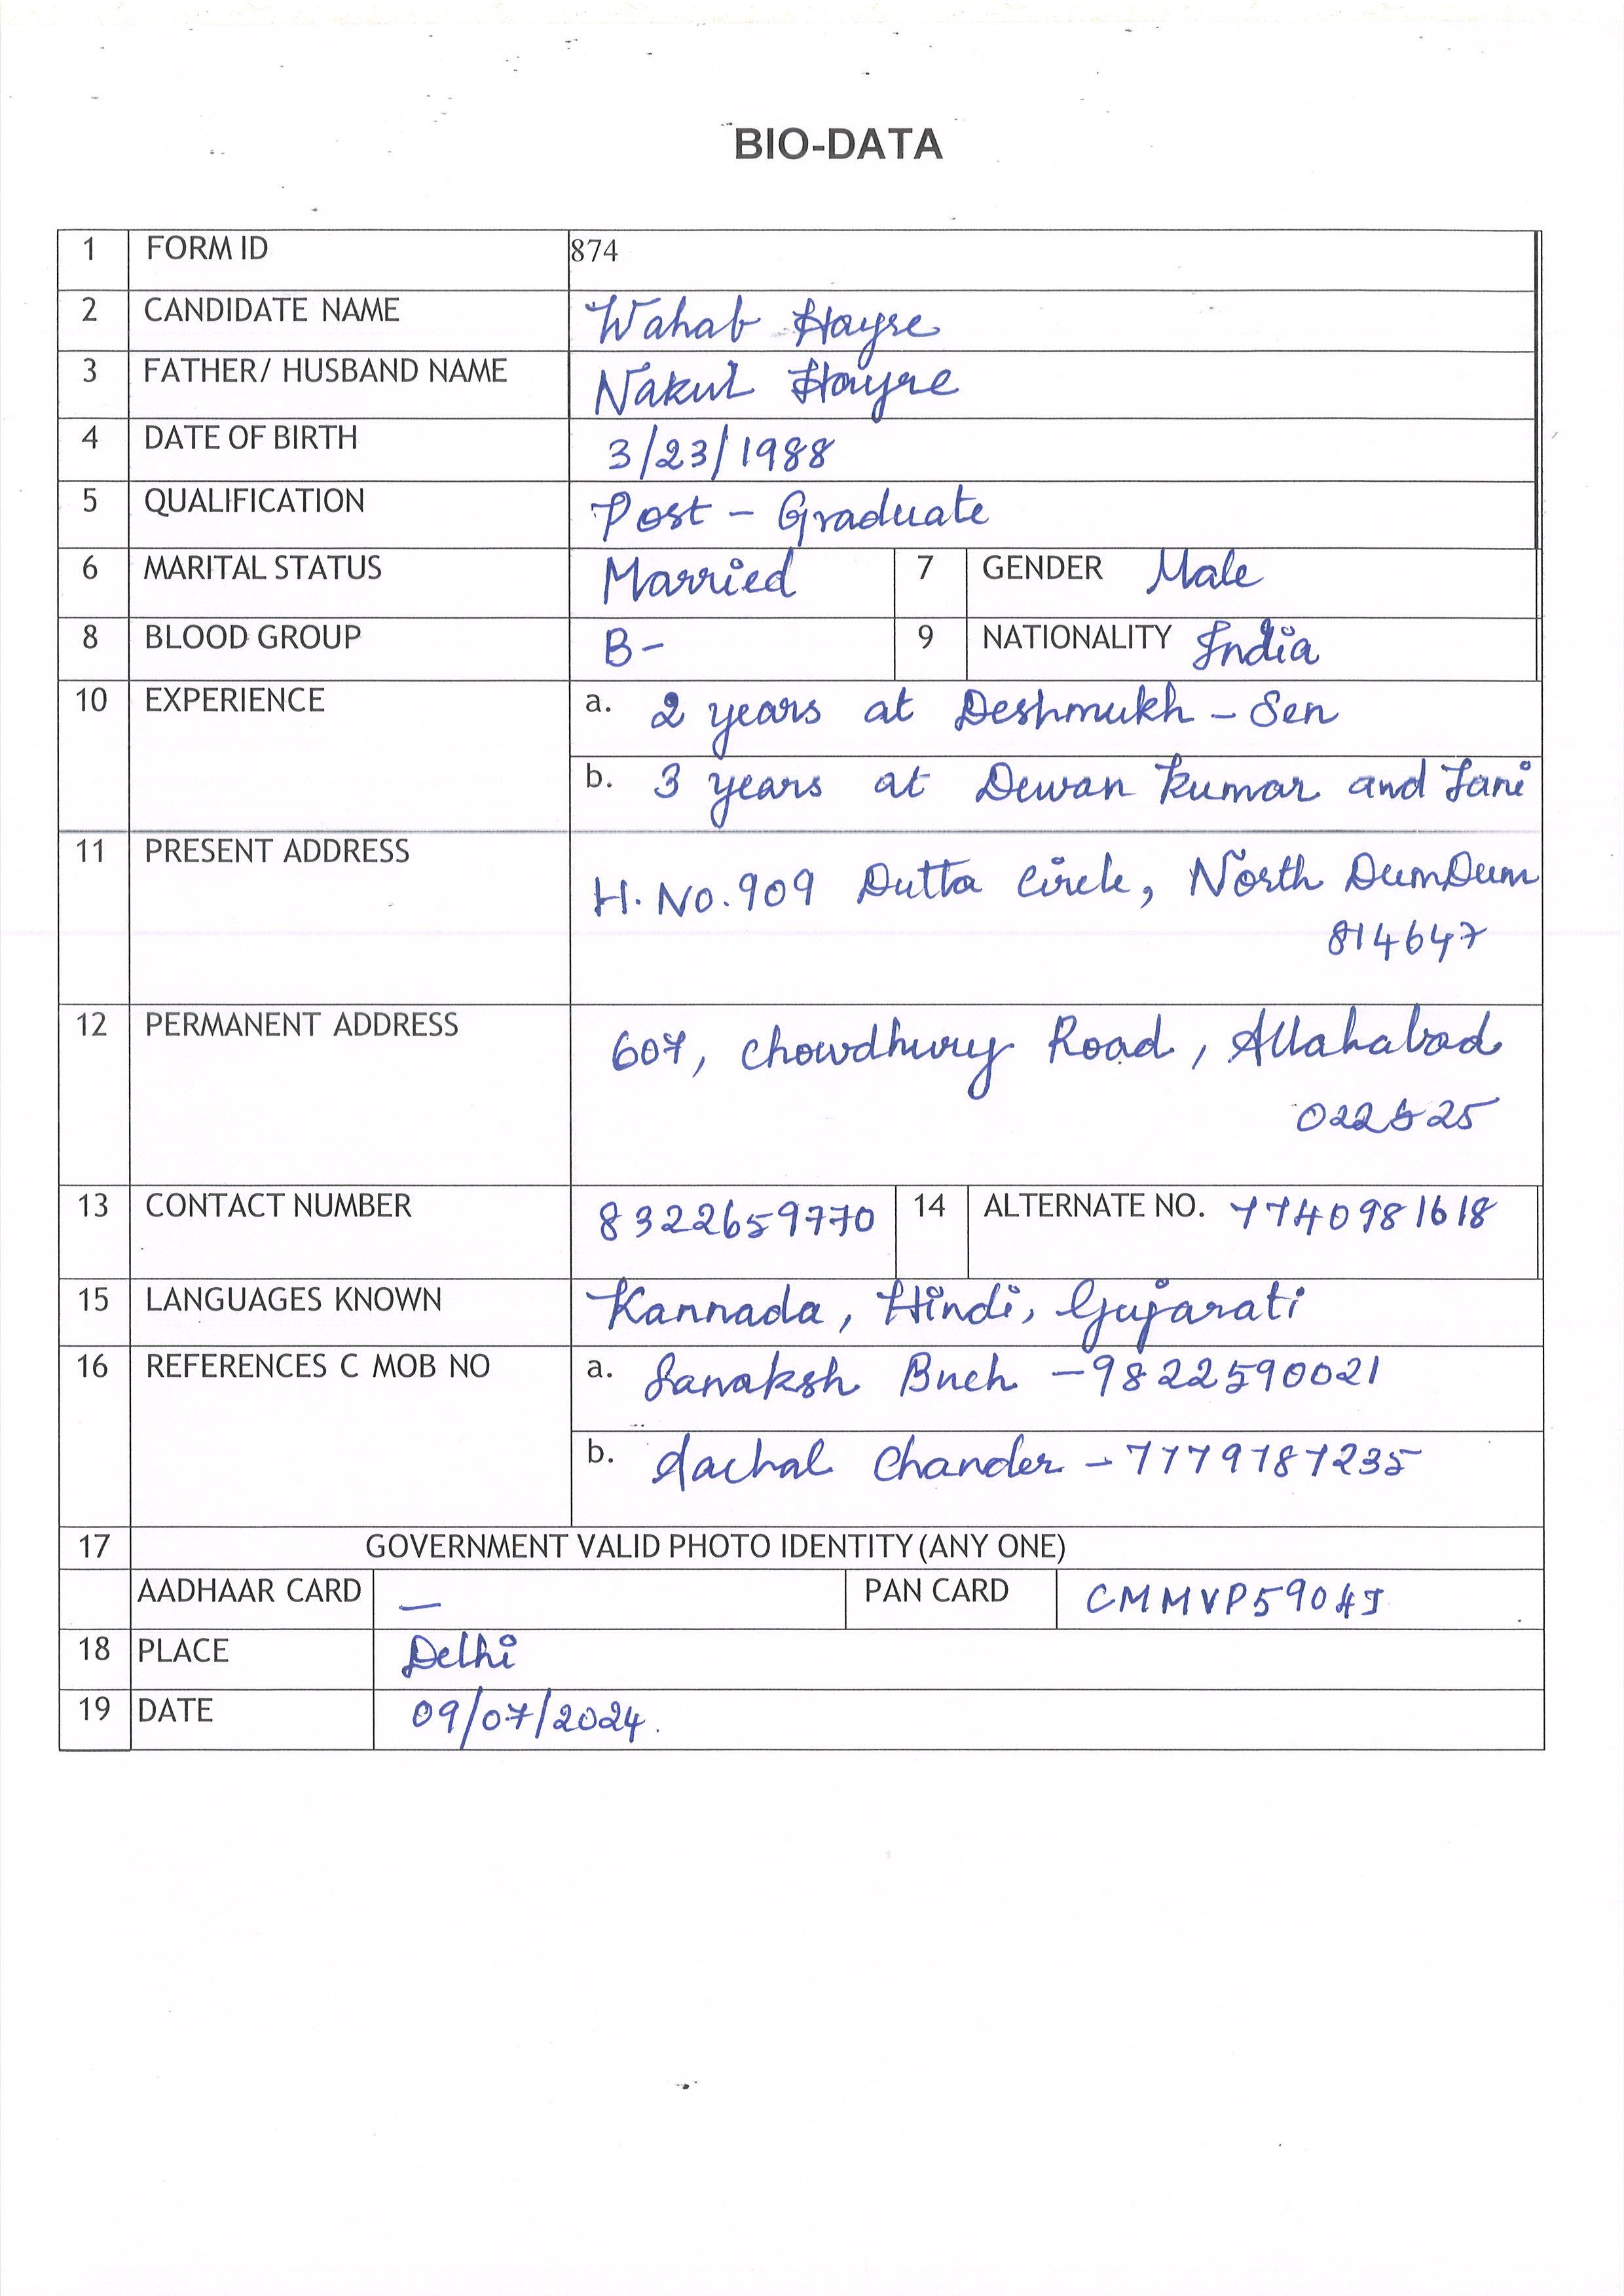 BIO-DATA
1 FORM ID 874
2 CANDIDATE NAME Wahab Hayre
3 FATHER/ HUSBAND NAME Nakul Hayre
4 DATE OF BIRTH 3/23/1988
5 QUALIFICATION Post - Graduate
6 MARITAL STATUS Married 7 GENDER Male
8 BLOOD GROUP B- 9 NATIONALITY India
10 EXPERIENCE a. 2 years at Deshmukh - Sen
b. 3 years at Dewan Kumar and Jani
11 PRESENT ADDRESS
H. No. 909 Dutta Circle, North DumDum
814647
12 PERMANENT ADDRESS 607, Chowdhury Road, Allahabad
13 CONTACT NUMBER 8322659770 14 ALTERNATE NO. 7740981618
15 LANGUAGES KNOWN Kannada, Hindi, Gujarati
16 REFERENCES C MOB NO a. Buch - 9822590021
b. Aachal Chander - 7779787235
17 GOVERNMENT VALID PHOTO IDENTITY (ANY ONE)
AADHAAR CARD — PAN CARD
18 PLACE Delhi
19 DATE 09/07/2024.